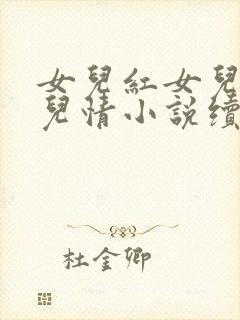 女兒紅女兒
兒情小說續
杜金卿